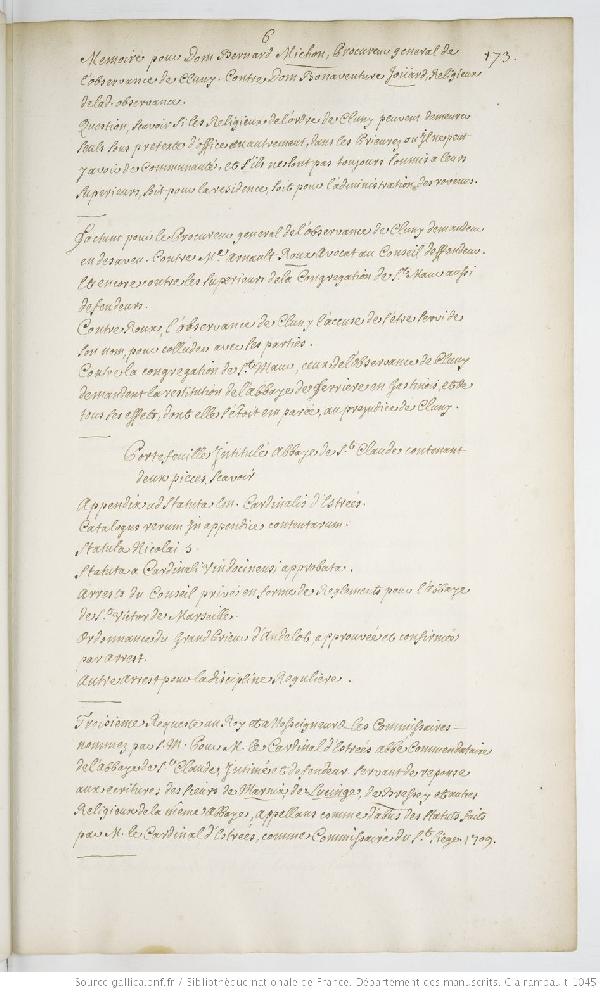 6
173.
Memoire pour Dom Bernard Michon, Procureur general de
l'observance de Cluny. Contre Dom Bonaventure Joüard, Religieux
de lad. observance.
Question, scavoir si les Religieux de l'ordre de Cluny peuvent demeurer
seuls sous pretexte d'office ou autrement, dans les Prieurez ou Il ne peut
y avoir de Communauté, et s'ils ne sont pas toujours soumis a leurs
superieurs, soit pour la residence, soit pour l'administration des revenus.
Factum pour le Procureur general de l'observance de Cluny demandeur
en desaveu. Contre Me. arnault Roux Avocat au Conseil deffendeur.
Et encore contre les superieurs de la Congregation de St. Maur aussi
defendeurs.
Contre Roux, l'observance de Cluny l'accuse de s'etre servi de
son nom, pour colluder avec les parties.
Contre la congregation de St. Maur, ceux de l'observance de Cluny
demandent la restitution de l'abbaye de ferriere en Gastinois, et de
tous les effets, dont elle s'etoit emparée, au prejudice de Cluny.
Portefeuille Intitulé Abbaye de St. Claude contenant
deux pieces, scavoir
Appendix ad statuta Em. Cardinalis d'Estrées.
Catalogus rerum In appendice contentarum.
Statuta Nicolai 5.
Statuta a Cardinali Vindocinensi approbata.
Arrests du Conseil privé en forme de Reglements pour l'abbaye
de St. Victor de Marseille.
Ordonnance du Grand Prieur d'Andelot, approuvée et confirmée
par arrest.
Autre Arrest pour la discipline Reguliere.
Troisieme Requeste au Roy et a Nosseigneurs les Commissaires
nommez par S. M. Pour M. le Cardinal d'Estrées abbé Commendataire
de l'abbaye de St. Claude, Intimé et defendeur. servant de reponse
aux ecritures des sieurs de Marnix, de Lucinge, de et autres
Religieux de la meme Abbaye, appellans comme d'abus des statuts faits
par M. le Cardinal d'Estrées, comme Commissaire du St. Siege. 1709.
Source gallica.bnf.fr / Bibliothèque nationale de France. Département des manuscrits. Clairambault 1045